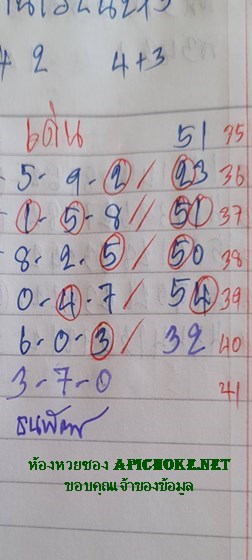 4 2 4+3
6เด่น 51 35
5-9-2/ 23 36
1-5-8// 51 37
8-2-5/ 50 38
0-4-7/ 54 39
6-0-3/ 32 40
3-7-0 41
ธนพัฒ
ห้องหวยซอง APICHOKE.NET
ขอบคุณเจ้าของข้อมูล